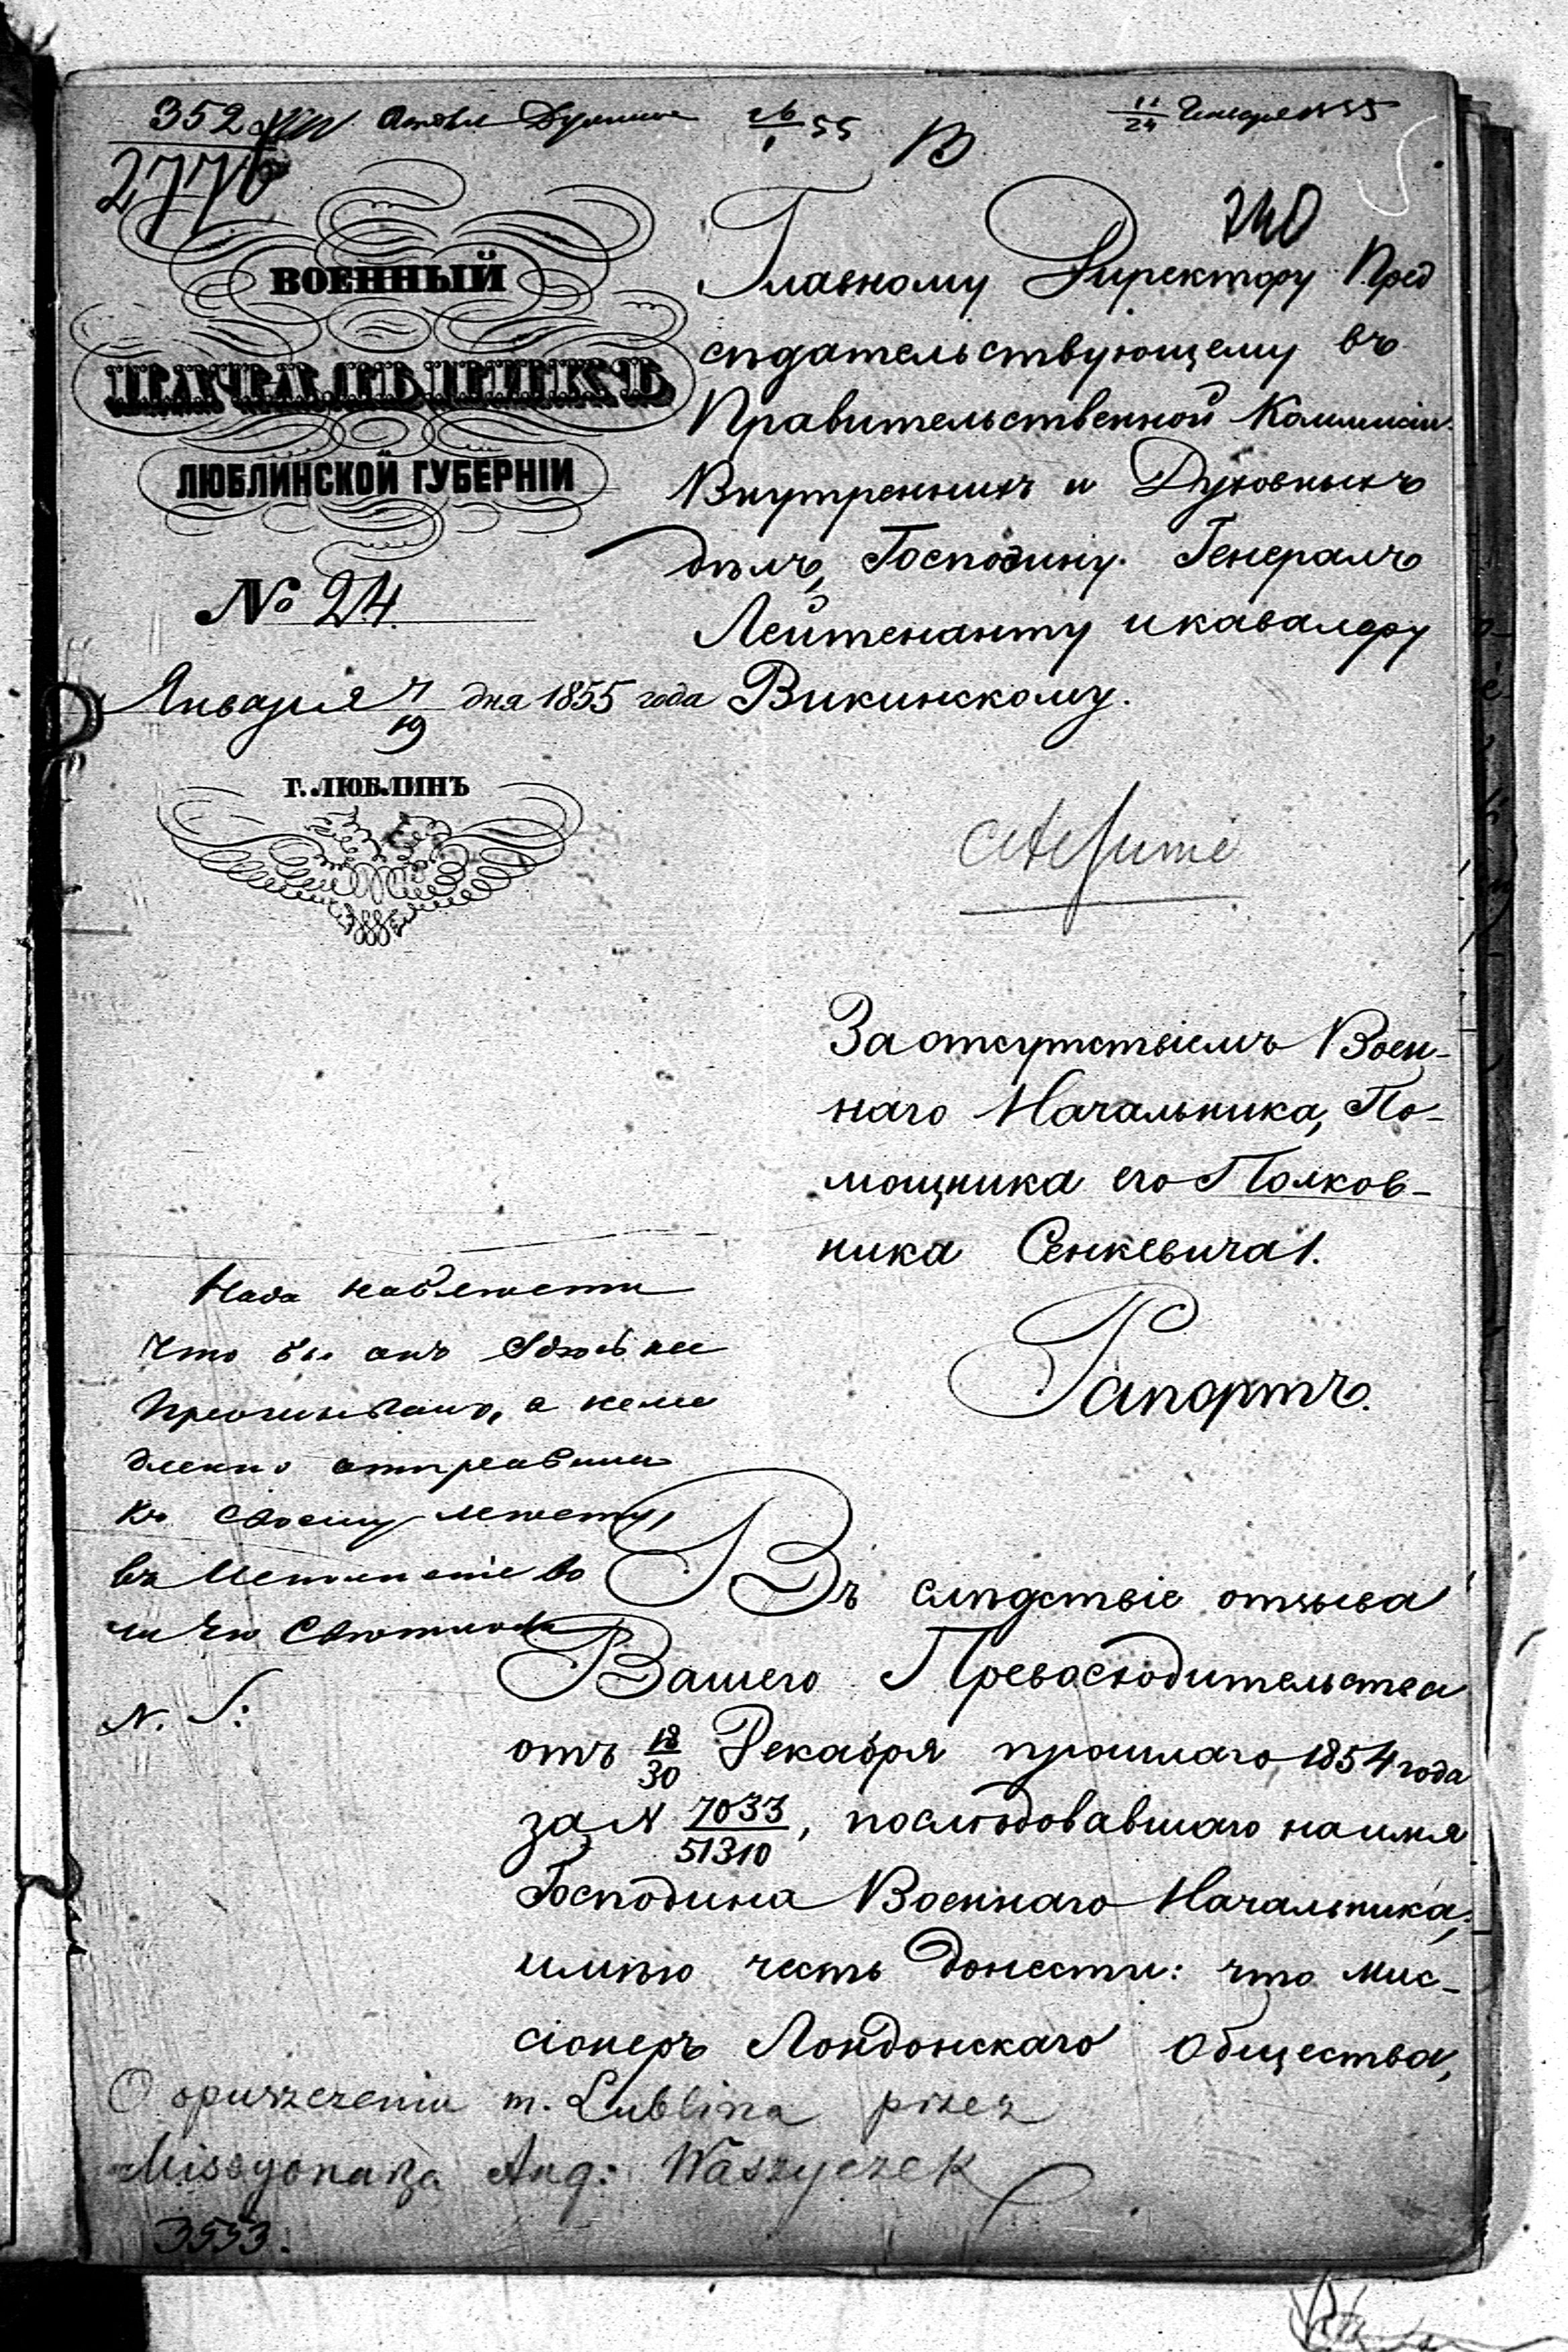 352
2776
55
В
11/24 Генваря 1855
240
ВОЕННЫЙ
НАЧАЛЬНИКЪ
ЛЮБЛИНСКОЙ ГУБЕРНІИ
№ 24.
Января 7/19 дня 1855 года
Г. ЛЮБЛИНЪ
Главному Директору Пред
сѣдательствующему въ
Правительственной Коммисіи
Внутреннихъ и Духовныхъ
дѣлъ, Господину Генералъ
Лейтенанту и кавалеру
Викинскому.
За отсутствіемъ Воен-
наго Начальника, По-
мощника его Полков-
ника Сенкевича 1.
Рапортъ.
Надо наблюсти
что бы онъ
а неме
дленно отправили
къ своему месту,
въ
N. S:
Въ слѣдствіе отзыва
Вашего Превосходительства
отъ 18/30 Декабря прошлаго 1854 года
за N 7033/51310, послѣдовавшаго на имя
Господина Военнаго Начальника,
имѣю честь донести: что Мис-
сіонеръ Лондонскаго Общества,
O opuszczeniu m. Lublina przez
Missyonarza Ang: Waszyczek
3553.